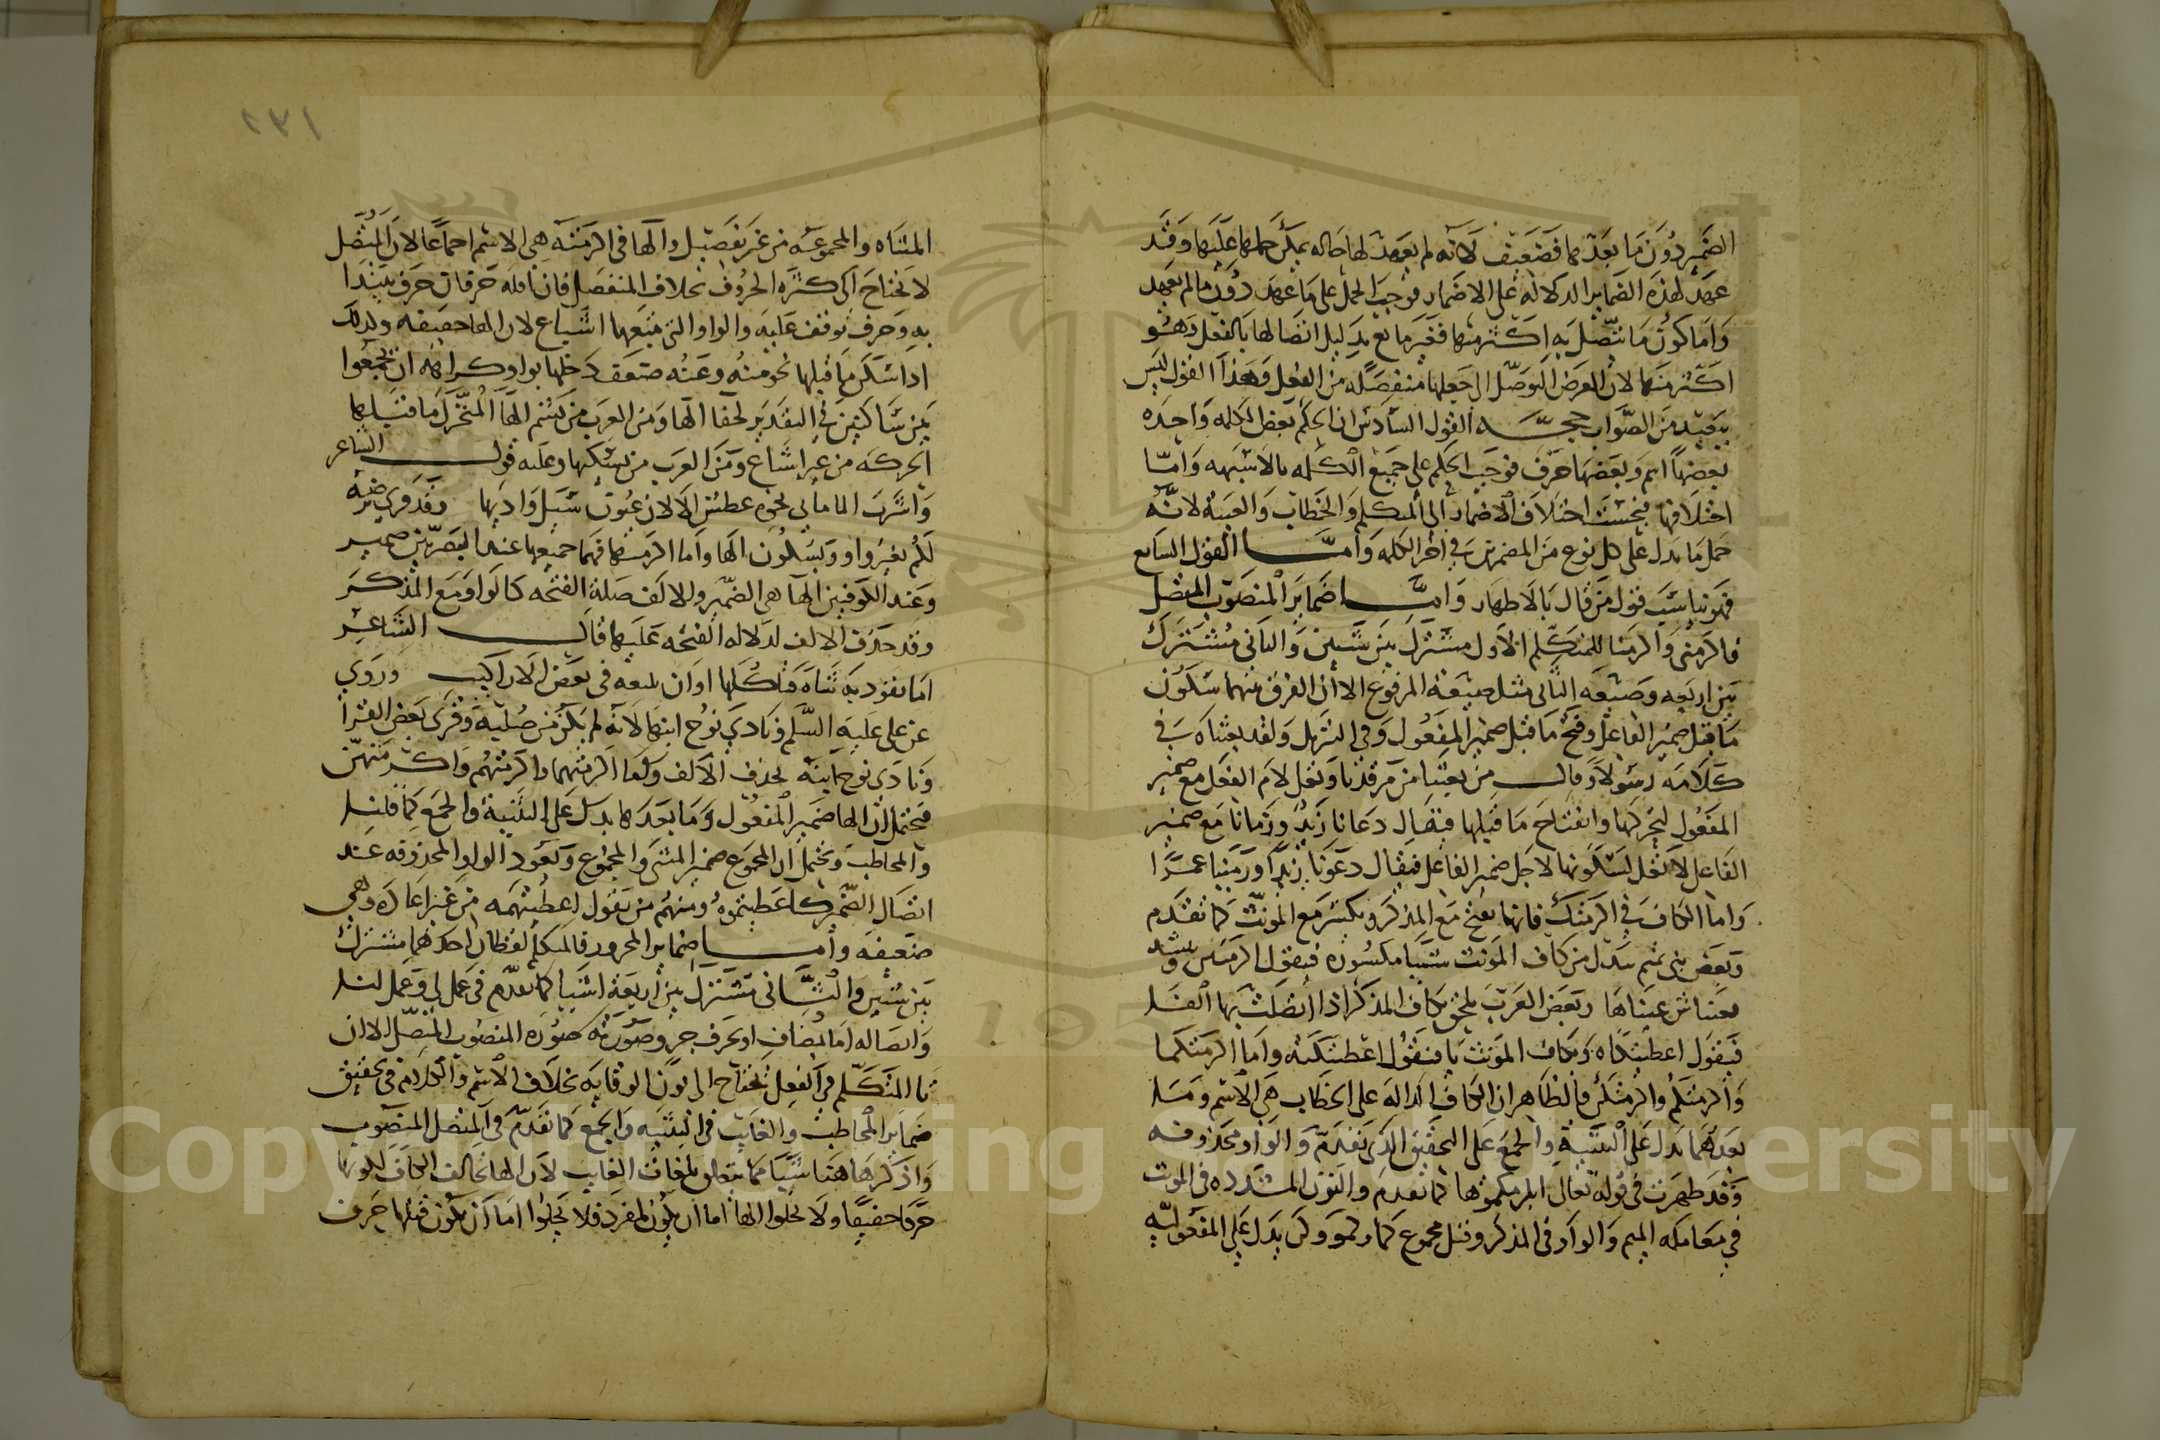 الضمير دون ما بعدهما فضعيف لانه لم يعهد لها حاله يمكن حملها عليها وقد
عهد لهذه الضماير الدلاله على الاضمار فوجب الحمل على ما عهد دون ما لم يعهد
واما كون ما يتصل به اكثر منها فغير مانع بدليل اتصالها بالفعل وهو
اكثر منها لان الغرض التوصل الى جعلها منفصله من الفعل وهذا القول ليس
ببعيد من الصواب حجـــة القول السادس ان الحكم بعض الكلمه واحده
بعضها اسم وبعضها حرف فوجب الحكم على جميع الكلمه بالاسميه واما
اختلافها فبحسب اختلاف الاضمار الى المتكلم والخطاب والغيبه لانه
جعل ما يدل على كل نوع من المضمرين في اخر الكلمه وامـــا القول السابع
فهو يناسب قول من قال بالاظهار وامـــا ضماير المنصوب المتصل
فاكرمني واكرمنا للمتكلم الاول مشترك بين شيين والثاني مشترك
بين اربعه وصيغه الثاني مثل صيغة المرفوع الا ان الفرق بينهما سكون
ما قبل ضمير الفاعل وفتح ما قبل ضمير المفعول وفي التنزيل ولقد بعثنا في
كل امه رسولا وقالــ من بعثنا من مرقدنا وتعل لام الفعل مع ضمير
المفعول لتحركها وانفتاح ما قبلها فيقال دعانا زيد ورمانا مع ضمير
الفاعل لا تعل لسكونها لاجل ضمير الفاعل فيقال دعونا زيدا ورمينا عمرا
واما الكاف في اكرمتك فانها يفتح مع المذكر ويكسر مع المونث كما تقدم
وبعض بني تميم يبدل من كاف المونث شينا مكسوره فيقول اكرمتش وينشد
فعيناش عيناها وبعض العرب يلحق بكاف المذكر اذا اتصلت بها الفا
فيقول اعطيتكاه وبكاف المونث يا فيقول اعطيتكيه واما اكرمتكما
واكرمتكم واكرمتكن فالظاهر ان الكاف الداله على الخطاب هي الاسم وما
بعدهما يدل على التثنية والجمع على التحقيق الذي تقدم والواو محذوفه
وقد ظهرت في قوله تعالى انلزمكموها كما تقدم والنون المشدده في المونث
في مقابله الميم والواو في المذكر وقيل مجموع كما وكمو وكن يدل على المفعوليه
٢٣١
المثناه والمجموعه من غير تفصيل والها في اكرمته هي الاسم اجماعا لان المتصل
لا يحتاج الى كثره الحروف بخلاف المنفصل فان اقله حرفان حرف يبتدا
به وحرف يوقف عليه والواو التي تتبعها اشباع لان الها خفيفه ولذلك
اذا سكن ما قبلها نحو منه وعنه ضعف دخلها بواو كراهه ان يجمعوا
بين ساكنين في التقدير لخفا الها ومن العرب من يضم الها المتحرك ما قبلها
بحركه من غير اشباع ومن العرب من يسكنها وعليه قولـــ الشاعر
واشرب الما ما بي نحوه عطش الا لان عيون سيل واديها وقد قري يرضه
لكم بغير واو وبسكون الها واما اكرمتها فهما جميعها عند البصريين ضمير
وعند الكوفيين الها هي الضمير والالف صلة الفتحه كالواو مع المذكر
وقد حذف الالف لدلاله الفتحه عليها قالـــ الشاعر
اما تقود به شاة فتاكلها او ان تبيعه في بعض الاراكيب وروي
عن علي عليه السلم ونادى نوح ابنها لانه لم يكن من صلبه وقرى بعض القرا
ونادى نوح ابنه بحذف الالف واما اكرمتهما واكرمتهم واكرمتهن
فيحتمل ان الها ضمير المفعول وما بعدها يدل على التثنية والجمع كما قلنا
والمخاطب ويحتمل ان المجموع ضمير المثنى والمجموع وتعود الواو المحذوفه عند
اتصال الضمير كاعطيتموه ومنهم من يقول اعطيتمه من غير اعاده وهي
ضعيفه وامـــا ضماير المجرور فالمتكلم لفظان احدهما مشترك
بين شيين والثاني مشترك بين اربعة اشيا كما تقدم في عمل لي وعمل لنا
واتصاله اما بمضاف او بحرف جر وصورته كصوره المنصوب المتصل الا ان
يا المتكلم في الفعل يحتاج الى نون الوقايه بخلاف الاسم والكلام في تحقيق
ضماير المخاطب والغايب في التثنيه والجمع كما تقدم في المتصل المنصوب
واذكر ها هنا شيا مما يتعلق بلغات الغايب لان الها تخالف الكاف لكونها
حرفا خفيفا ولا تخلوا الها اما ان يكون لمفرد فلا يخلوا اما ان يكون قبلها حرف
Copy King Sa University
195